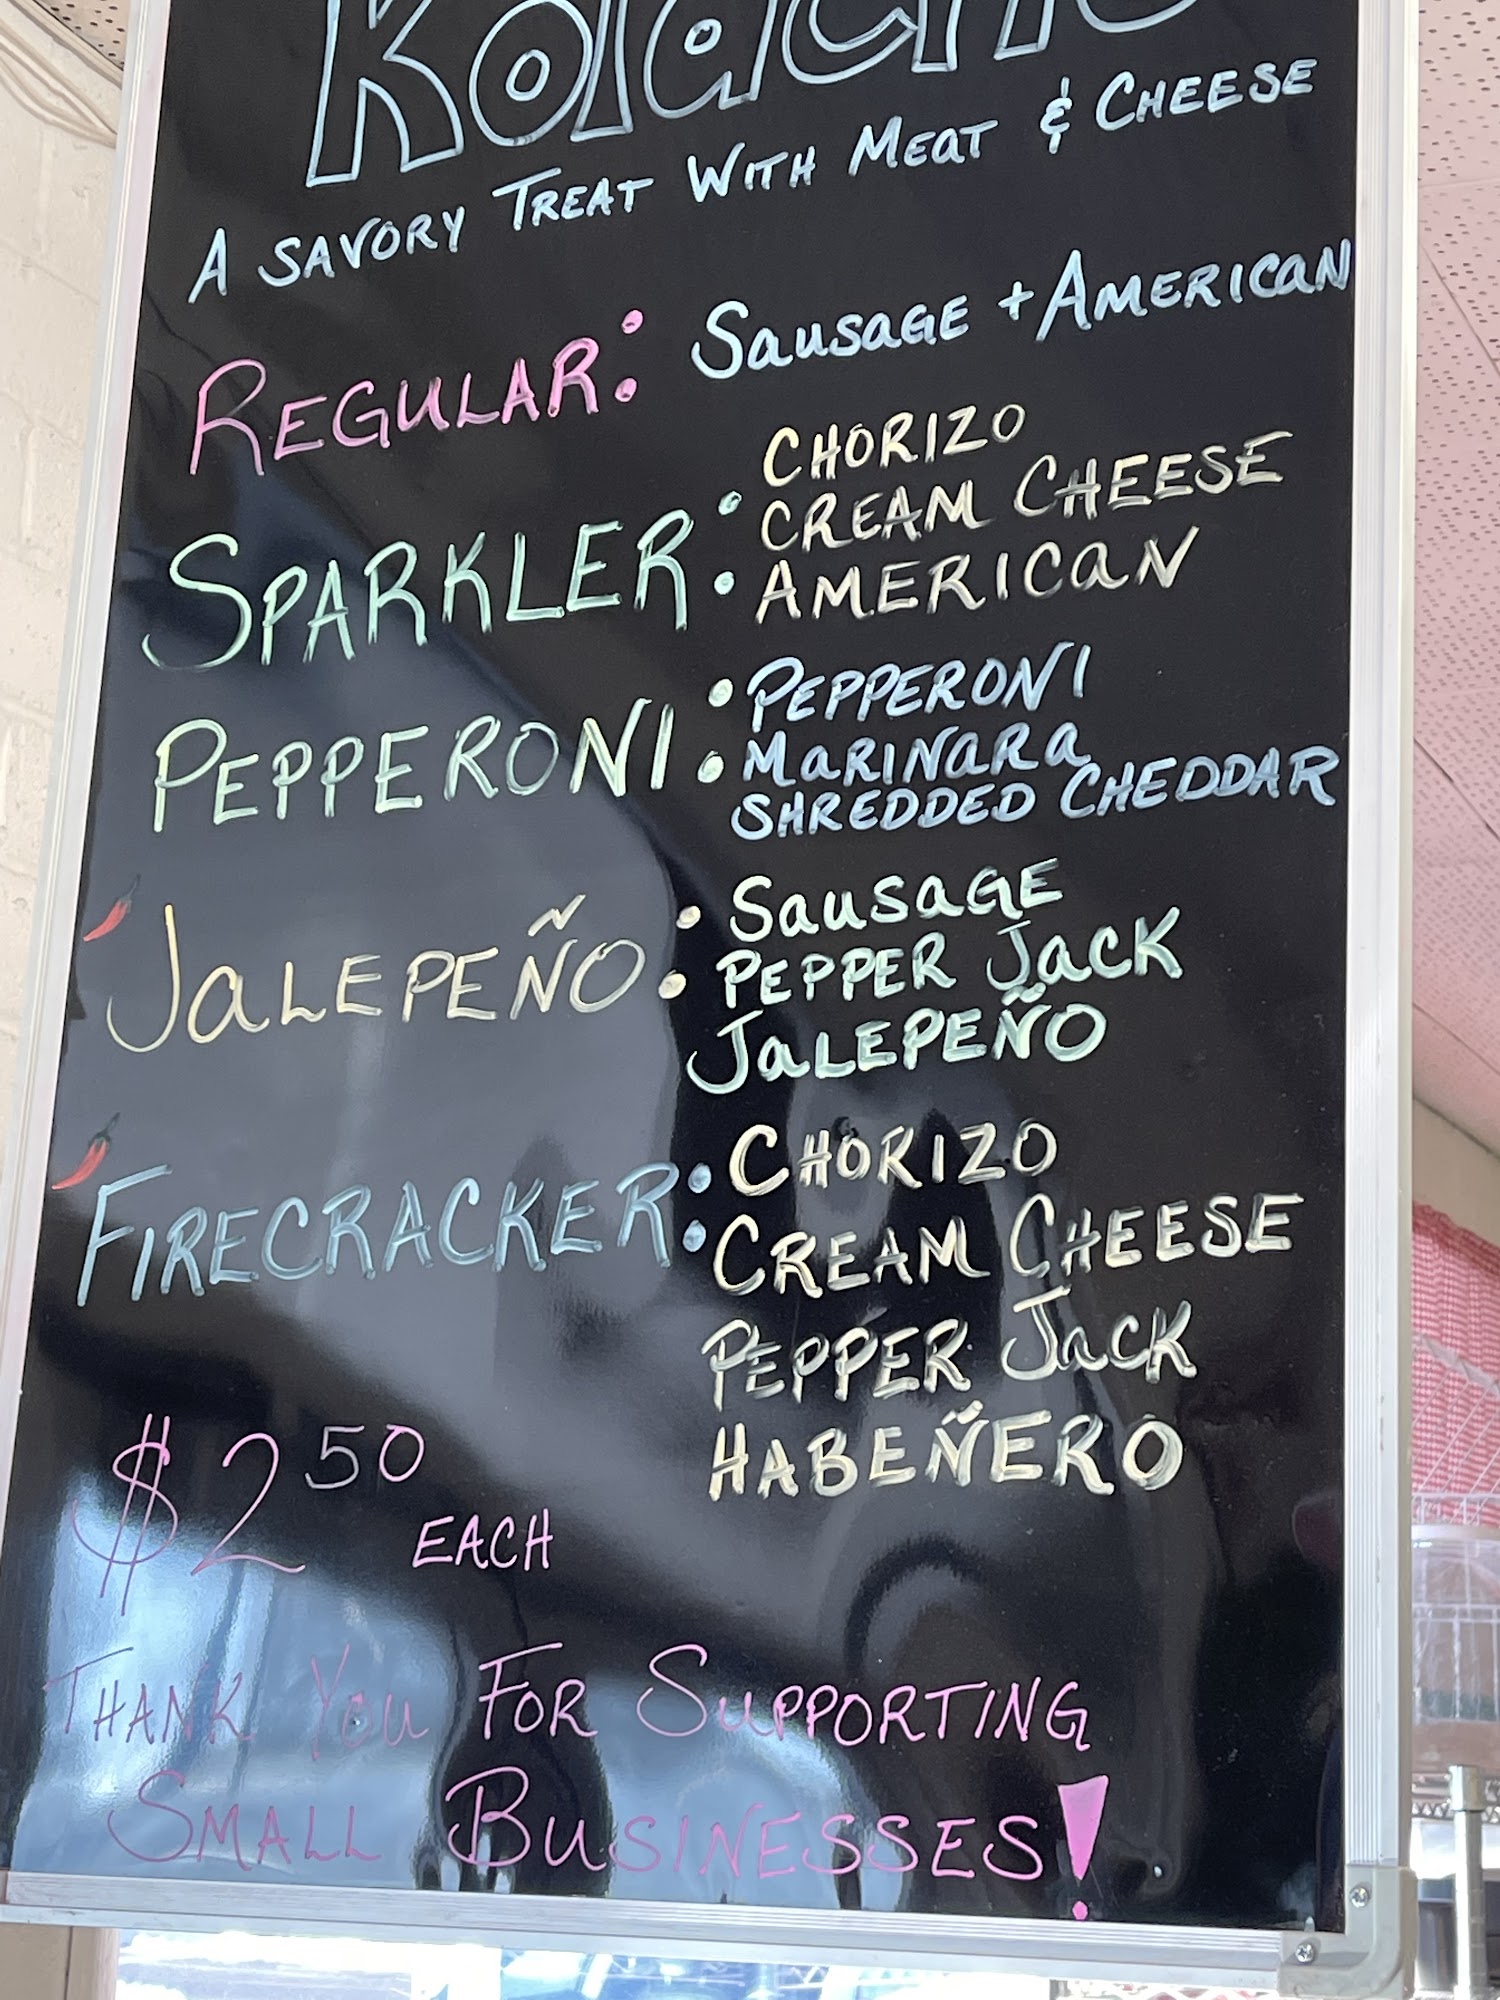 Kolache
A SAVORY TREAT WITH MEAT & CHEESE
REGULAR: SAUSAGE + AMERICAN
SPARKLER: CHORIZO
CREAM CHEESE
AMERICAN
PEPPERONI: PEPPERONI
MARINARA
SHREDDED CHEDDAR
JALEPEÑO: SAUSAGE
PEPPER JACK
JALEPEÑO
FIRECRACKER: CHORIZO
CREAM CHEESE
PEPPER JACK
HABEÑERO
$2.50 EACH
THANK YOU FOR SUPPORTING
SMALL BUSINESSES!